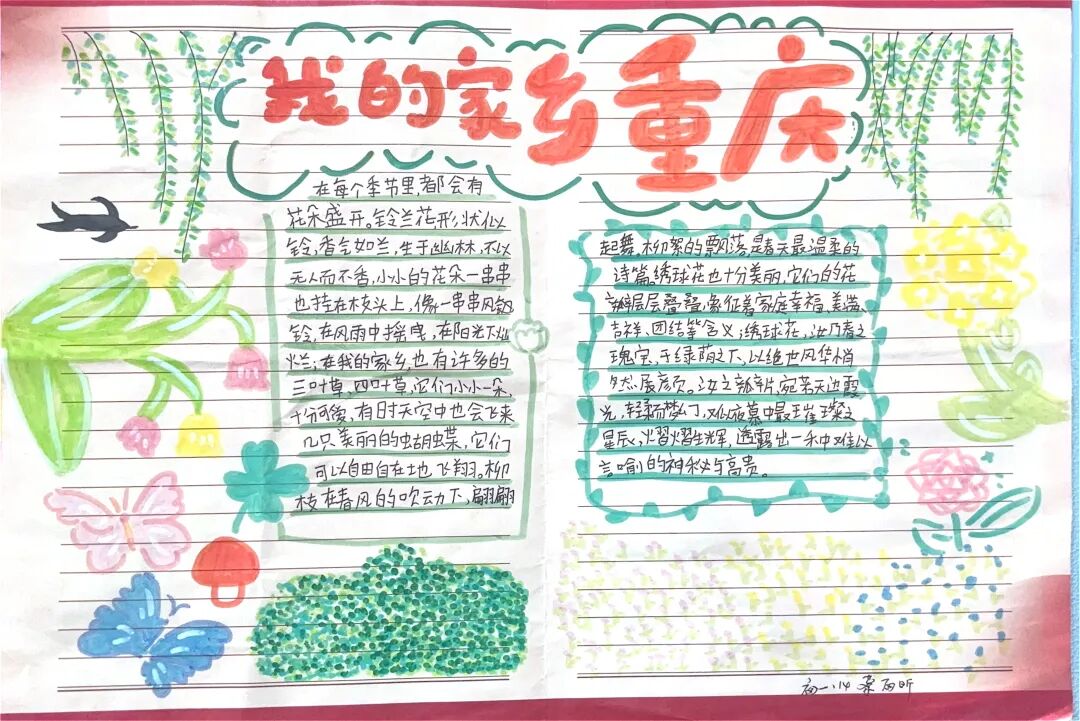 我的家乡重庆
在每个季节里,都会有
花朵盛开。铃兰花形状似
铃,香气如兰,生于幽林,不以
无人而不香,小小的花朵一串串
也挂在枝头上,像一串串风铃
铃,在风雨中摇曳,在阳光下灿
烂;在我的家乡,也有许多的
三叶草,四叶草,它们小小一朵,
十分可爱,有时天空中也会飞来
几只美丽的蝴蝶,它们
可以自由自在地飞翔。柳
枝在春风的吹动下,翩翩
起舞,柳絮的飘落,是春天最温柔的
诗篇。绣球花也十分美丽,它们的花
瓣层层叠叠,象征着家庭幸福、美满、
吉祥、团结等含义;绣球花,汝乃春之
瑰宝,于绿荫之下,以绝世风华悄
然展颜。汝之瓣,宛若天边霞
光,轻柔而梦幻,又似夜幕中最璀璨之
星辰,熠熠生辉,透露出一种难以
言喻的神秘与高贵。
初一.14